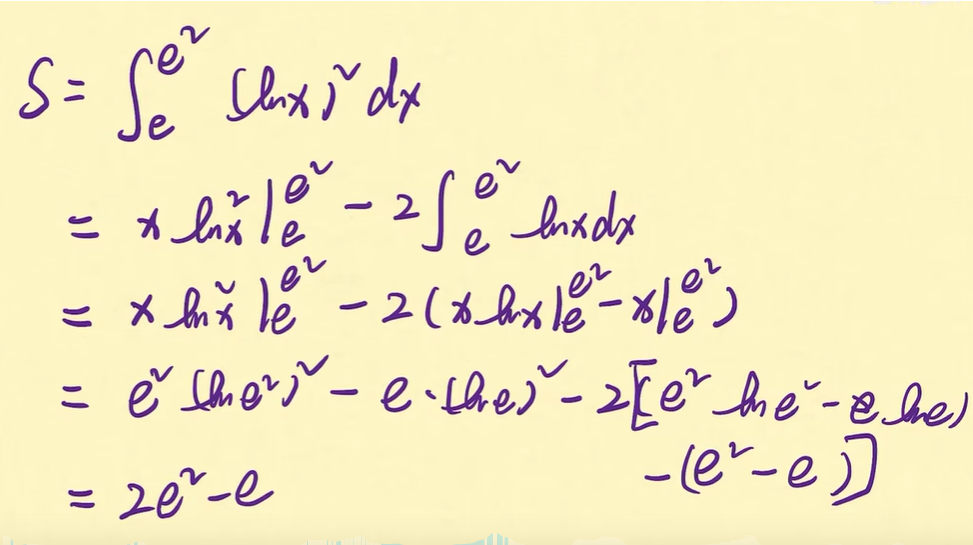 S = ∫_e^{e^2} (lnx)^2 dx
= x ln^2 x |_e^{e^2} - 2∫_e^{e^2} lnxdx
= x ln^2 x |_e^{e^2} - 2(x lnx|_e^{e^2} - x|_e^{e^2})
= e^2 (ln e^2)^2 - e·(lne)^2 - 2[e^2 ln e^2 - e lne)
-(e^2 - e)]
= 2e^2 - e